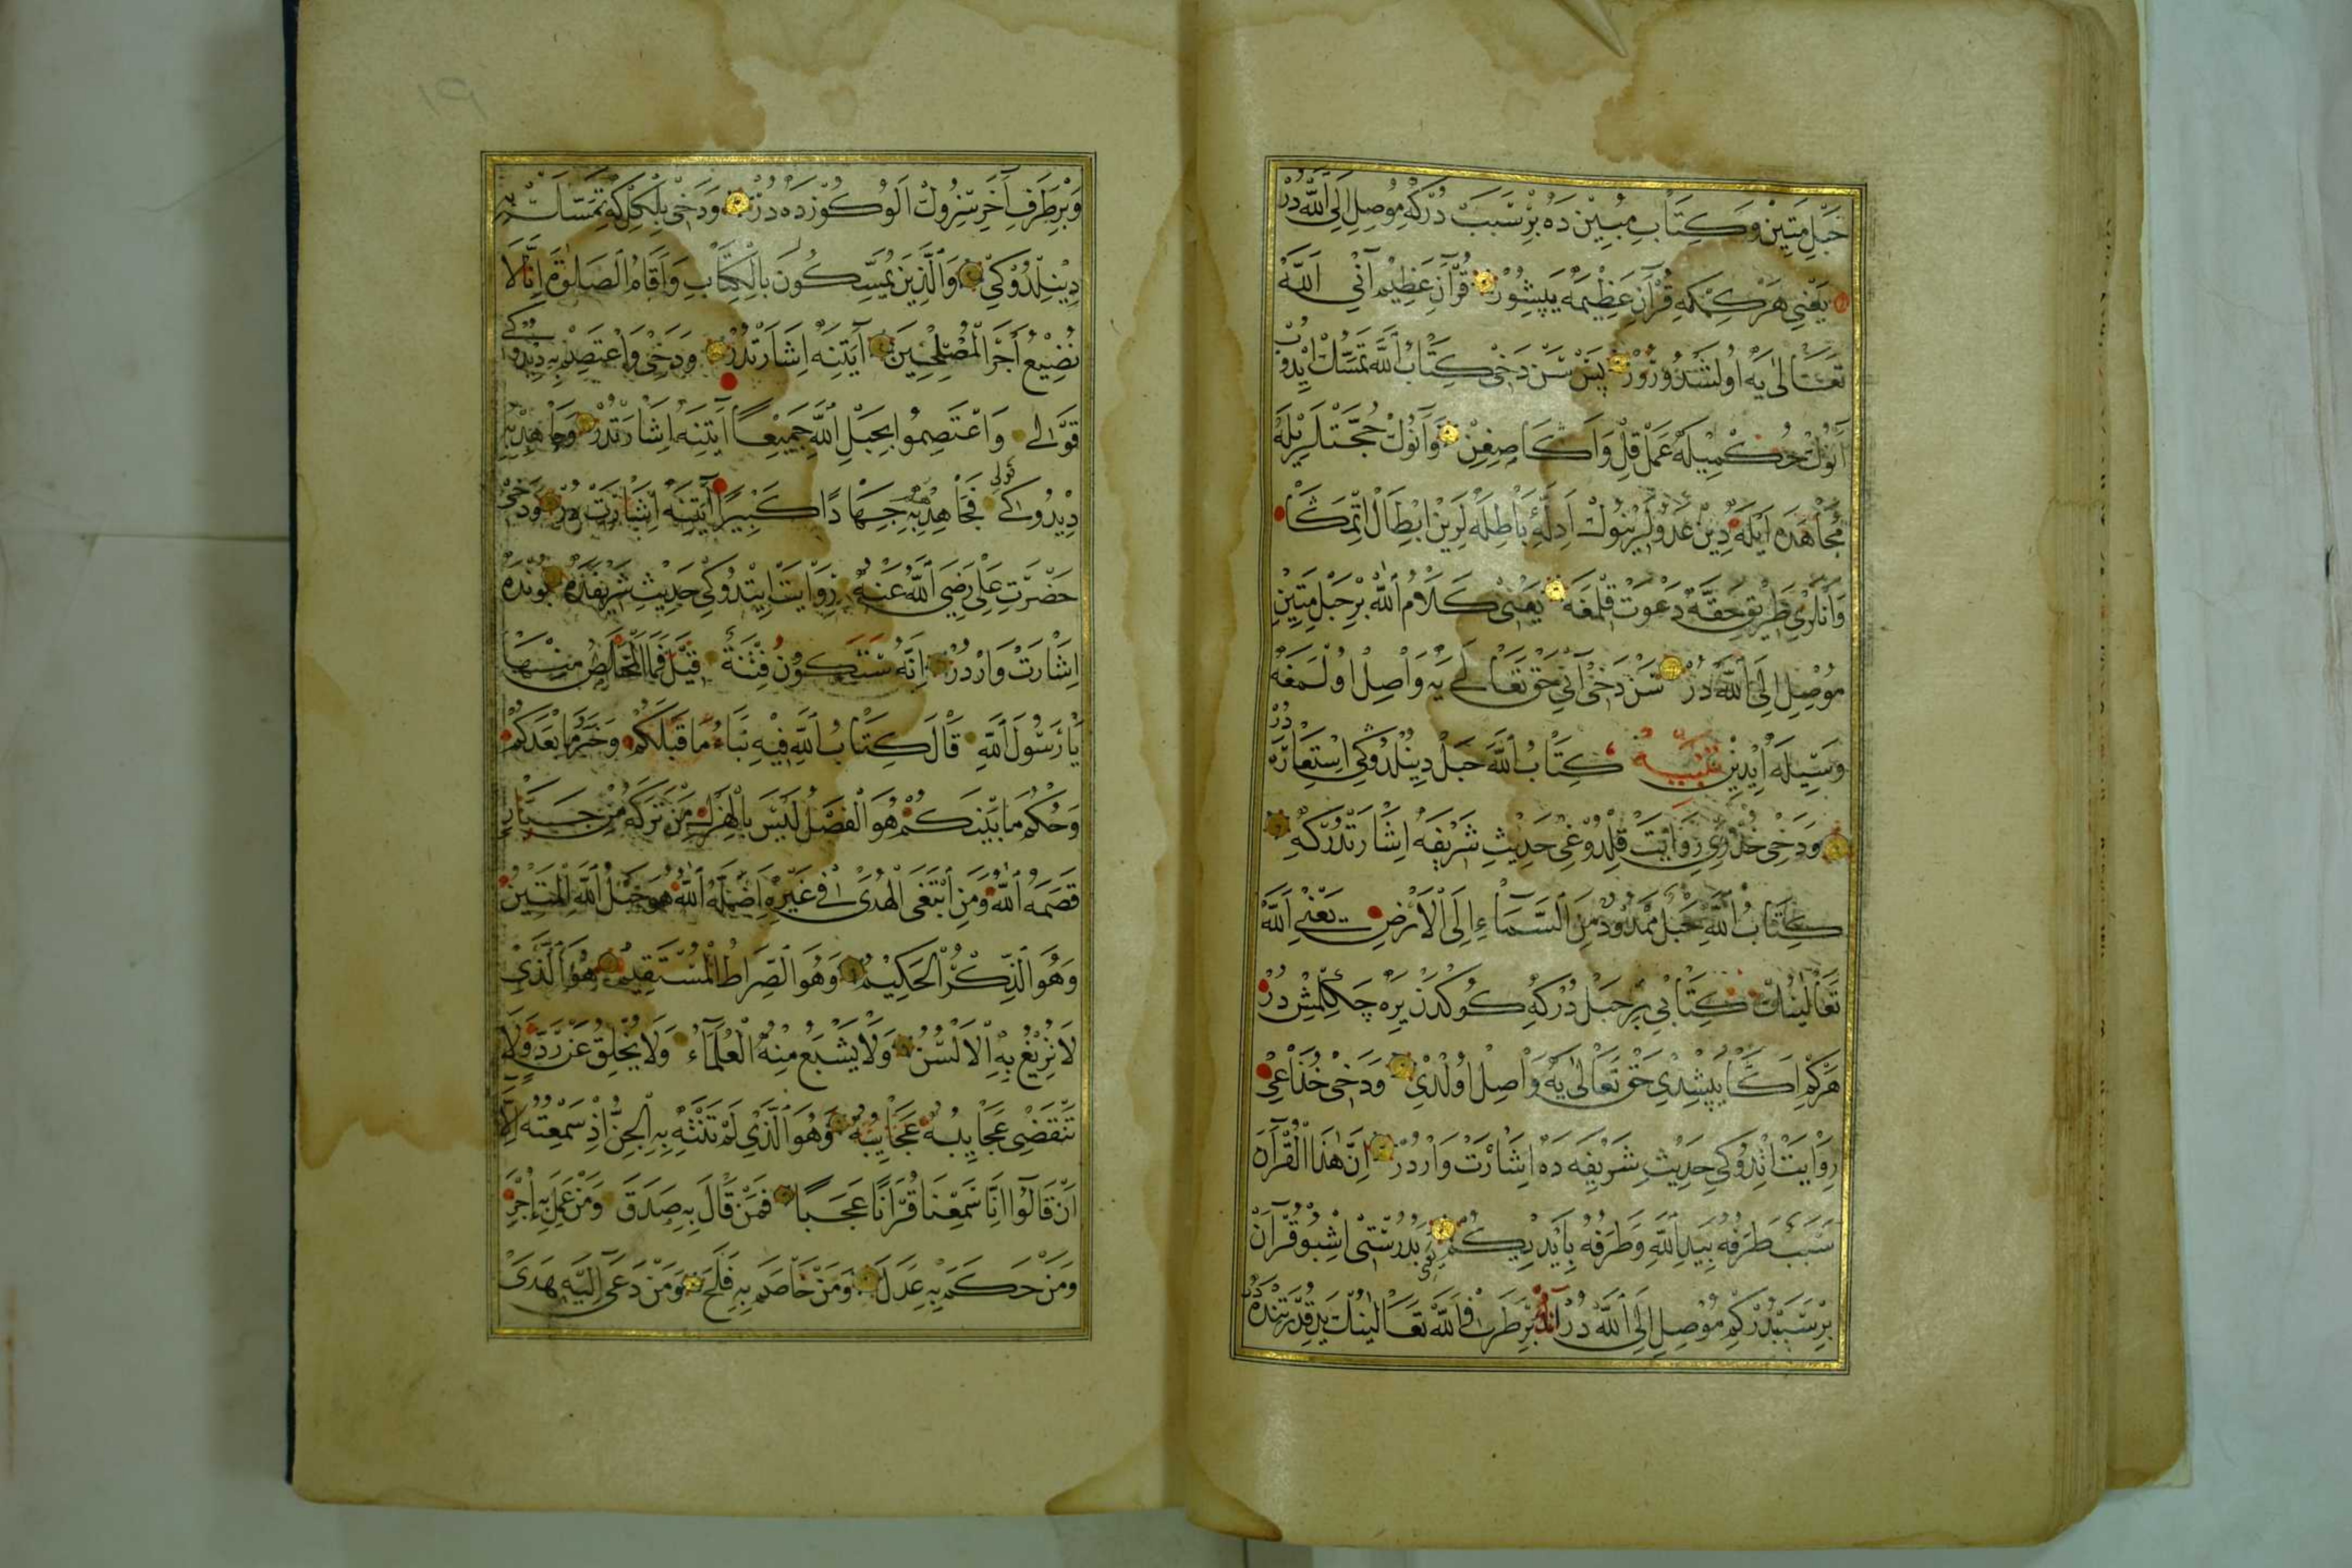 حَبْلِ مَتِينْ وَكِتَابِ مُبِينْ دَهْ بِرْ سَبَبْ دُرْ كِه مُوصِلْ اِلَى ٱللّٰه دُرْ
يَعْنِي هَرْ كِمْكِه قُرْآنِ عَظِيمَه يَپِشُورْ قُرْآنِ عَظِيمْ آنِي اَللّٰه
تَعَالٰى يَه اُولَشْدُورُرْ پَسْ سَنْ دَخِى كِتَابُ ٱللّٰهَ تَمَسُّكْ اِيدُوبْ
آنُوكْ حُكْمِيلَه عَمَلْ قِلْ وَاَكَا صِغِنْ وَآنُوكْ حُجَّتْلَرِيلَه
مُجَاهَدَه اَيْلَه دِينْ عَدُولَرِينُوكْ اَدِلَّهِٔ بَاطِلَه لَرِينْ اِبْطَالْ اِتْمَكَا
وَآنْلَرِي طَرِيقِ حَقَّه دَعْوَتْ قِلْمَغَه يَعْنِى كَلَامُ ٱللّٰه بِرْ حَبْلِ مَتِينِ
مُوصِلْ اِلَى ٱللّٰه دُرْ سَنْ دَخِى آنِي حَقْ تَعَالٰى يَه وَاصِلْ اُولْمَغَه
وَسِيلَه اِيدِينْ تَنْبِيهْ كِتَابُ ٱللّٰهَ حَبْلْ دِينُلْدُوكِي اِسْتِعَارَه دُرْ
وَدَخِى خُدْرِي رِوَايَتْ قِلْدُوغِى حَدِيثِ شَرِيفَه اِشَارَتْدُرْ كِه
كِتَابُ ٱللّٰهِ حَبْلٌ مَمْدُودٌ مِنَ ٱلسَّمَاءِ اِلَى ٱلْاَرْضِ يَعْنِي اَللّٰه
تَعَالٰىنُكْ كِتَابِي بِرْ حَبْلْ دُرْ كِه كُوكْدَنْ يِرَه چَكِلْمِشْ دُرْ
هَرْ كِمْ اَكَا يَپِشْدِي حَقْ تَعَالٰى يَه وَاصِلْ اُولْدِي وَدَخِى خُزَاعِي
رِوَايَتْ اِتْدُوكِي حَدِيثِ شَرِيفَه دَه اِشَارَتْ وَارْدُرْ اِنَّ هٰذَا ٱلْقُرْآنَ
سَبَبٌ طَرَفُهُ بِيَدِ ٱللّٰهِ وَطَرَفُهُ بِاَيْدِيكُمْ يَعْنِى بَدُرُسْتِى اِشْبُو قُرْآنْ
بِرْ سَبَبْدُرْ كِمْ مُوصِلْ اِلَى ٱللّٰه دُرْ آنُكْ بِرْ طَرَفِى اَللّٰه تَعَالٰىنُكْ يَدِ قُدْرَتِنْدَه دُرْ
وَبِرْ طَرَفِ آخَرِ سِزُوكْ اَلُوكُوزْدَه دُرْ وَدَخِى بِلْكِلْ كِه تَمَسَّكْ بِهِ
دِينِلْدُوكِي وَٱلَّذِينَ يُمَسِّكُونَ بِالْكِتَابِ وَاَقَامُوا ٱلصَّلٰوةَ اِنَّا لَا
نُضِيعُ اَجْرَ ٱلْمُصْلِحِينَ آيَتِنَه اِشَارَتْدُرْ وَدَخِى وَاعْتَصِمْ بِهِ دِيدُوكِي
قَوْلِ وَٱعْتَصِمُوا بِحَبْلِ ٱللّٰهِ جَمِيعًا آيَتِنَه اِشَارَتْدُرْ وَجَاهِدْ بِهِ
دِيدُوكِي قَوْلِ فَجَاهِدْ بِهِ جِهَادًا كَبِيرًا آيَتِنَه اِشَارَتْ دُرْ وَدَخِى
حَضْرَتِ عَلِي رَضِيَ ٱللّٰهُ عَنْهُ رِوَايَتْ اِيتْدُوكِى حَدِيثِ شَرِيفَدَه بُونْدَه
اِشَارَتْ وَارْدُرْ اِنَّهُ سَتَكُونُ فِتْنَةٌ قِيلَ فَمَا ٱلْمَخَالِصُ مِنْهَا
يَا رَسُولَ ٱللّٰهِ قَالَ كِتَابُ ٱللّٰهِ فِيهِ نَبَاءُ مَا قَبْلَكُمْ وَخَبَرُ مَا بَعْدَكُمْ
وَحُكْمُ مَا بَيْنَكُمْ هُوَ ٱلْفَصْلُ لَيْسَ بِالْهَزْلِ مَنْ تَرَكَهُ مِنْ جَبَّارٍ
قَصَمَهُ ٱللّٰهُ وَمَنِ ٱبْتَغَى ٱلْهُدَى فِي غَيْرِهِ اَضَلَّهُ ٱللّٰهُ هُوَ حَبْلُ ٱللّٰهِ ٱلْمَتِينُ
وَهُوَ ٱلذِّكْرُ ٱلْحَكِيمُ وَهُوَ ٱلصِّرَاطُ ٱلْمُسْتَقِيمُ هُوَ ٱلَّذِي
لَا تَزِيغُ بِهِ ٱلْاَلْسُنُ وَلَا يَشْبَعُ مِنْهُ ٱلْعُلَمَاءُ وَلَا يَخْلَقُ عَنْ رَدٍّ وَلَا
تَنْقَضِي عَجَايِبُهُ عَجَايِبُهُ وَهُوَ ٱلَّذِي لَمْ تَنْتَهِ بِهِ ٱلْجِنُّ اِذْ سَمِعْتُهُ اِلَّا
اَنْ قَالُوا اِنَّا سَمِعْنَا قُرْآنًا عَجَبًا فَمَنْ قَالَ بِهِ صَدَقَ وَمَنْ عَمِلَ بِهِ اُجِرَ
وَمَنْ حَكَمَ بِهِ عَدَلَ وَمَنْ خَاصَمَ بِهِ فَلَحَ وَمَنْ دَعَى اِلَيْهِ هَدَى
١٩